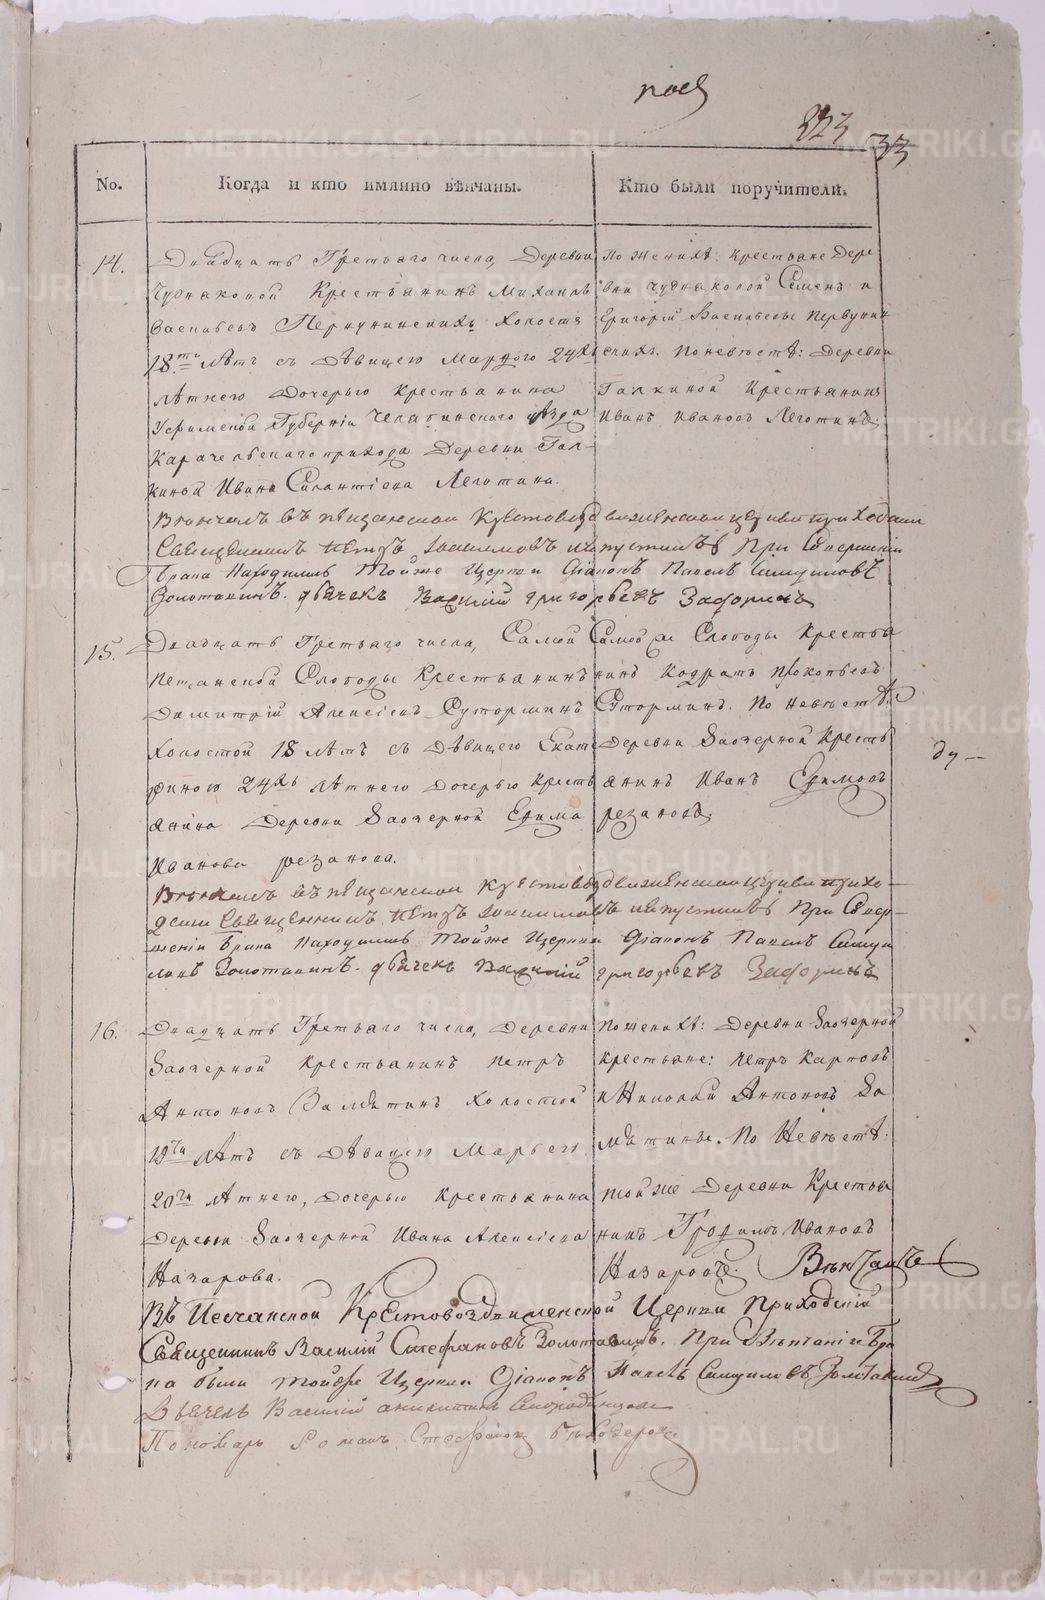 323
33
No.
Когда и кто имянно вѣнчаны.
Кто были поручители.
14.
Двадцать Третьяго числа, Деревни
Чудиаковой Крестьянинъ Михаилъ
Васильевъ Первунинскихъ холостъ
18ти лѣтъ съ Дѣвицею Марѳою 24хъ
лѣтнею Дочерью Крестьянина
Уфимской Губерніи Челябинскаго уѣзда
Карачельскаго прихода Деревни Гал-
киной Ивана Силантіева Леготина.
По женихѣ: крестьяне Дере
вни Чудиаковой Семенъ и
Григорій Васильевы Первунин
скихъ. По невѣстѣ: Деревни
Галкиной Крестьянинъ
Иванъ Ивановъ Леготинъ.
Вѣнчалъ въ Пещанской Крестовоздвиженской церкви приходской
Священникъ Петръ При Совершеніи
брака Находились Тойже Церкви Діаконъ Павелъ Самуиловъ
Золотавинъ. дьячекъ Василій Григорьевъ
15.
Двадцать Третьяго числа, Самой
Пещанской Слободы Крестьянинъ
Димитрій Алексіевъ Суторминъ
Холостой 18 лѣтъ съ Дѣвицею Екате
риною 24хъ лѣтнею дочерью Кресть
янина Деревни Заозерной Ефима
Иванова резанова.
Самой Слободы Крестья
нинъ Кодратъ Прокопьевъ
Сторминъ. По невѣстѣ:
Деревни Заозерной Кресть
янинъ Иванъ Ефимовъ
резановъ.
Вѣнчалъ въ Пещанской Крестовоздвиженской церкви прихо-
дской Священникъ Петръ При Совер-
шеніи брака Находились Тойже Церкви Діаконъ Павелъ Самуи
ловъ Золотавинъ. дьячекъ Василій Григорьевъ
16.
Двадцать Третьяго числа, Деревни
Заозерной крестьянинъ Петръ
Антоновъ Замятинъ холостой
19ти лѣтъ съ Дѣвицею Марьею
20ти лѣтнею, дочерью Крестьянина
деревни Заозерной Ивана Алексіева
Назарова.
По женихѣ: Деревни Заозерной
Крестьяне: Петръ Карповъ
и Николай Антоновъ За
мятины. По Невѣстѣ:
тойже Деревни Крестья
нинъ Трофимъ Ивановъ
Назаровъ. Вѣнчалъ
въ Песчанской Крестовоздвиженской Церкви Приходскій
Священникъ Василій Стефановъ Золотавинъ. При Вѣнчаніи бра
ка были тойже Церкви Діаконъ Павелъ Самуиловъ Золотавинъ
Дьячекъ Василій
Пономарь Романъ Стефановъ